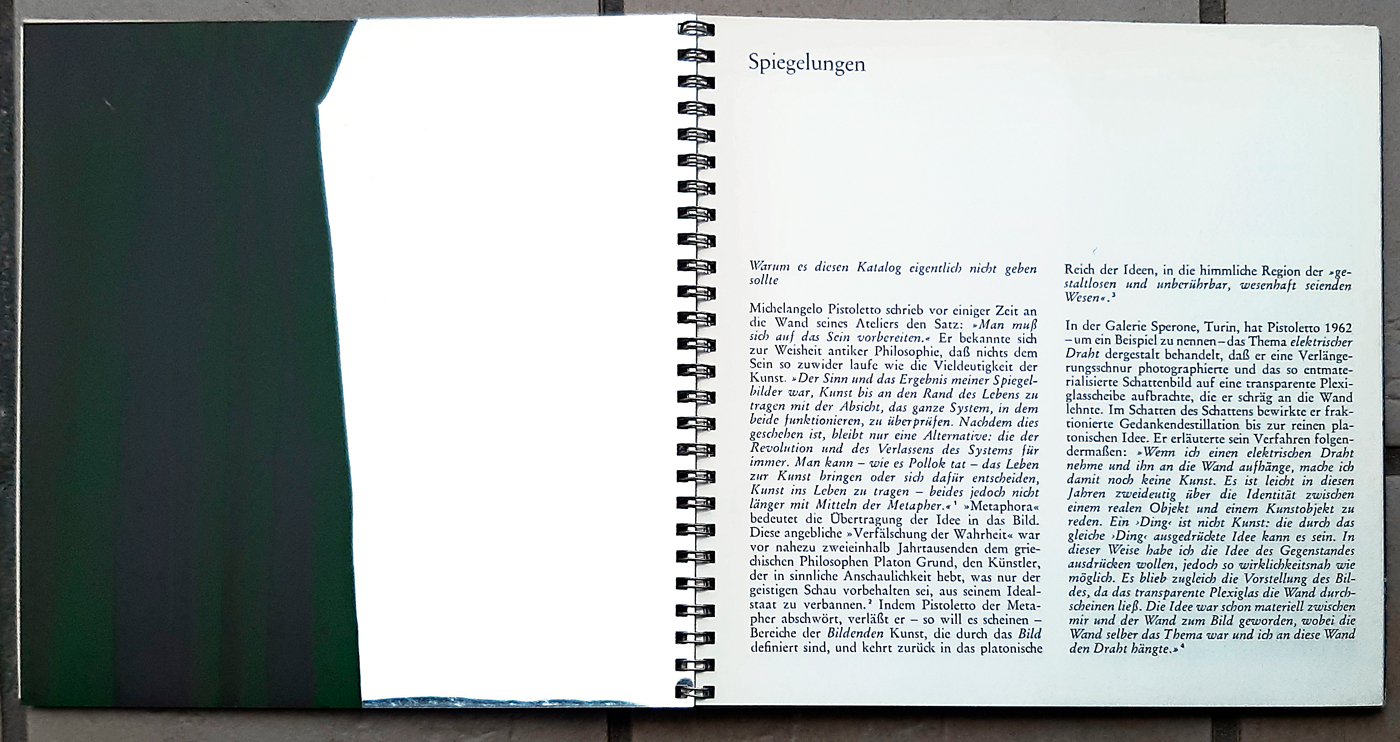 Spiegelungen
Warum es diesen Katalog eigentlich nicht geben
sollte
Michelangelo Pistoletto schrieb vor einiger Zeit an
die Wand seines Ateliers den Satz: »Man muß
sich auf das Sein vorbereiten.« Er bekannte sich
zur Weisheit antiker Philosophie, daß nichts dem
Sein so zuwider laufe wie die Vieldeutigkeit der
Kunst. »Der Sinn und das Ergebnis meiner Spiegel-
bilder war, Kunst bis an den Rand des Lebens zu
tragen mit der Absicht, das ganze System, in dem
beide funktionieren, zu überprüfen. Nachdem dies
geschehen ist, bleibt nur eine Alternative: die der
Revolution und des Verlassens des Systems für
immer. Man kann – wie es Pollok tat – das Leben
zur Kunst bringen oder sich dafür entscheiden,
Kunst ins Leben zu tragen – beides jedoch nicht
länger mit Mitteln der Metapher.«¹ »Metaphora«
bedeutet die Übertragung der Idee in das Bild.
Diese angebliche »Verfälschung der Wahrheit« war
vor nahezu zweieinhalb Jahrtausenden dem grie-
chischen Philosophen Platon Grund, den Künstler,
der in sinnliche Anschaulichkeit hebt, was nur der
geistigen Schau vorbehalten sei, aus seinem Ideal-
staat zu verbannen.² Indem Pistoletto der Meta-
pher abschwört, verläßt er – so will es scheinen –
Bereiche der Bildenden Kunst, die durch das Bild
definiert sind, und kehrt zurück in das platonische
Reich der Ideen, in die himmliche Region der »ge-
staltlosen und unberührbar, wesenhaft seienden
Wesen«.³
In der Galerie Sperone, Turin, hat Pistoletto 1962
– um ein Beispiel zu nennen – das Thema elektrischer
Draht dergestalt behandelt, daß er eine Verlänge-
rungsschnur photographierte und das so entmate-
rialisierte Schattenbild auf eine transparente Plexi-
glasscheibe aufbrachte, die er schräg an die Wand
lehnte. Im Schatten des Schattens bewirkte er frak-
tionierte Gedankendestillation bis zur reinen pla-
tonischen Idee. Er erläuterte sein Verfahren folgen-
dermaßen: »Wenn ich einen elektrischen Draht
nehme und ihn an die Wand aufhänge, mache ich
damit noch keine Kunst. Es ist leicht in diesen
Jahren zweideutig über die Identität zwischen
einem realen Objekt und einem Kunstobjekt zu
reden. Ein ›Ding‹ ist nicht Kunst: die durch das
gleiche ›Ding‹ ausgedrückte Idee kann es sein. In
dieser Weise habe ich die Idee des Gegenstandes
ausdrücken wollen, jedoch so wirklichkeitsnah wie
möglich. Es blieb zugleich die Vorstellung des Bil-
des, da das transparente Plexiglas die Wand durch-
scheinen ließ. Die Idee war schon materiell zwischen
mir und der Wand zum Bild geworden, wobei die
Wand selber das Thema war und ich an diese Wand
den Draht hängte.»⁴